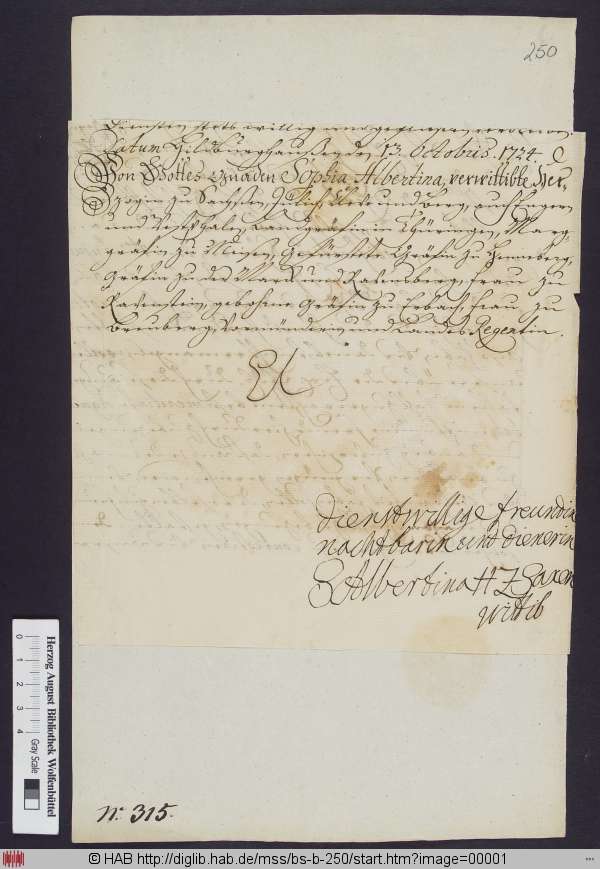 250
stets willig und geflissen verbleiben.
Datum Hildburghaußen, den 13. Octobris. 1724.
Von Gottes Gnaden Sophia Albertina, verwittibte Her-
zogin zu Sachsen, Jülich, Cleve und Berg, auch Engern
und Westphalen, Landgräfin in Thüringen, Marg-
gräfin zu Meisen, Gefürstete Gräfin zu Henneberg,
Gräfin zu der Marck und Ravensberg, Frau zu
Ravenstein, gebohrne Gräfin zu Erbach, Frau zu
Breuberg, Vormünderin und Landes Regentin.
dienstwillige freundin
nachtbarin und dienerin
S Albertina H Z Saxen
wittib
N: 315.
Herzog August Bibliothek Wolfenbüttel
Gray Scale
0 1 2 3 4
© HAB http://diglib.hab.de/mss/bs-b-250/start.htm?image=00001